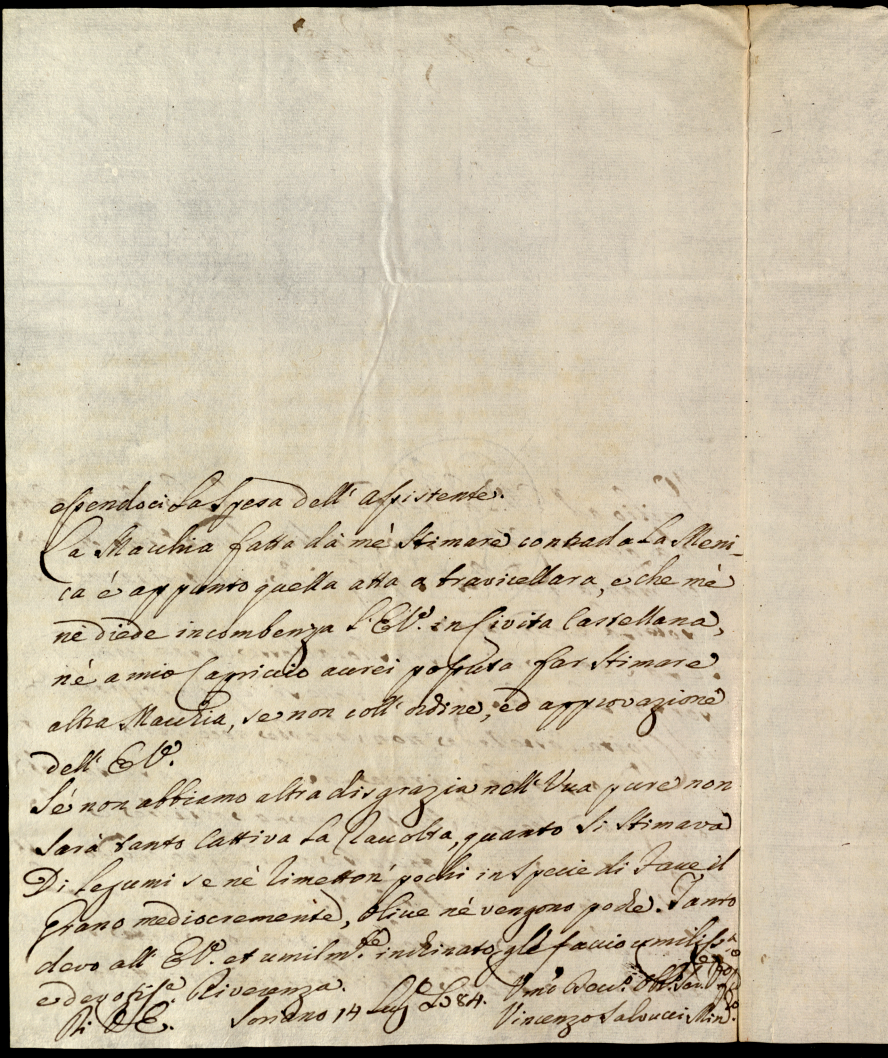 essendoci la Spesa dell' assistente.
La Macchia fatta da mè Stimare contrada La Meni-
ca é appunto quella atta a travicellara, e che mè
ne diede incombenza l'E.V. in Civita Castellana,
né a mio Capriccio aurei possuta far Stimare
altra Macchia, se non coll' ordine, ed approvazione
dell' E.V.
Sé non abbiamo altra disgrazia nell' Vua pure non
sarà tanto Cattiva La Raccolta, quanto Si Stimava
Di Legumi se né rimetton' pochi in Specie di Faue il
Grano mediocremente, Oliue né vengono poche. Tanto
devo all' E.V. et umilm.te inchinato gle faccio umiliss.a
e devotiss.a Riverenza.
Di V.E. Soriano 14 Lug.o 84. Vmo Deu.o Obl.
Vincenzo Salvucci Min.o